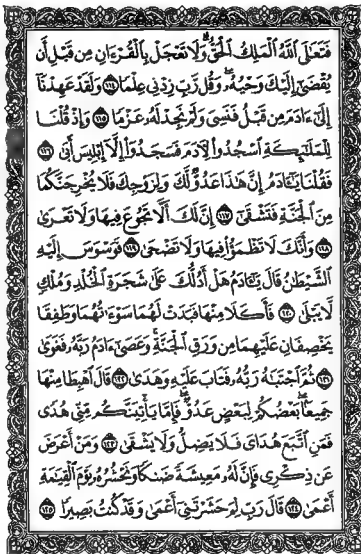 فَتَعَٰلَى ٱللَّهُ ٱلْمَلِكُ ٱلْحَقُّ ۗ وَلَا تَعْجَلْ بِٱلْقُرْءَانِ مِن قَبْلِ أَن
يُقْضَىٰٓ إِلَيْكَ وَحْيُهُۥ ۖ وَقُل رَّبِّ زِدْنِي عِلْمًا ١١٤ وَلَقَدْ عَهِدْنَآ
إِلَىٰٓ ءَادَمَ مِن قَبْلُ فَنَسِيَ وَلَمْ نَجِدْ لَهُۥ عَزْمًا ١١٥ وَإِذْ قُلْنَا
لِلْمَلَٰٓئِكَةِ ٱسْجُدُوا۟ لِءَادَمَ فَسَجَدُوٓا۟ إِلَّآ إِبْلِيسَ أَبَىٰ ١١٦
فَقُلْنَا يَٰٓـَٔادَمُ إِنَّ هَٰذَا عَدُوٌّ لَّكَ وَلِزَوْجِكَ فَلَا يُخْرِجَنَّكُمَا
مِنَ ٱلْجَنَّةِ فَتَشْقَىٰٓ ١١٧ إِنَّ لَكَ أَلَّا تَجُوعَ فِيهَا وَلَا تَعْرَىٰ
١١٨ وَأَنَّكَ لَا تَظْمَؤُا۟ فِيهَا وَلَا تَضْحَىٰ ١١٩ فَوَسْوَسَ إِلَيْهِ
ٱلشَّيْطَٰنُ قَالَ يَٰٓـَٔادَمُ هَلْ أَدُلُّكَ عَلَىٰ شَجَرَةِ ٱلْخُلْدِ وَمُلْكٍ
لَّا يَبْلَىٰ ١٢٠ فَأَكَلَا مِنْهَا فَبَدَتْ لَهُمَا سَوْءَٰتُهُمَا وَطَفِقَا
يَخْصِفَانِ عَلَيْهِمَا مِن وَرَقِ ٱلْجَنَّةِ ۚ وَعَصَىٰٓ ءَادَمُ رَبَّهُۥ فَغَوَىٰ
١٢١ ثُمَّ ٱجْتَبَٰهُ رَبُّهُۥ فَتَابَ عَلَيْهِ وَهَدَىٰ ١٢٢ قَالَ ٱهْبِطَا مِنْهَا
جَمِيعًۢا ۖ بَعْضُكُمْ لِبَعْضٍ عَدُوٌّ ۖ فَإِمَّا يَأْتِيَنَّكُم مِّنِّي هُدًى
فَمَنِ ٱتَّبَعَ هُدَايَ فَلَا يَضِلُّ وَلَا يَشْقَىٰ ١٢٣ وَمَنْ أَعْرَضَ
عَن ذِكْرِي فَإِنَّ لَهُۥ مَعِيشَةً ضَنكًا وَنَحْشُرُهُۥ يَوْمَ ٱلْقِيَٰمَةِ
أَعْمَىٰ ١٢٤ قَالَ رَبِّ لِمَ حَشَرْتَنِيٓ أَعْمَىٰ وَقَدْ كُنتُ بَصِيرًا ١٢٥